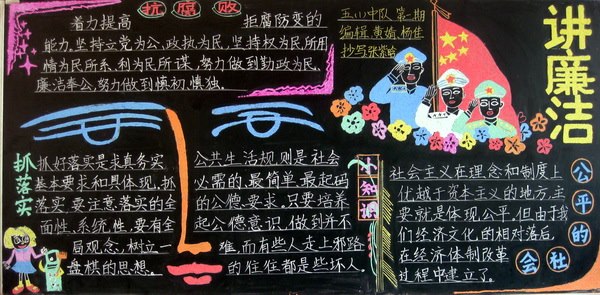 抗腐败
着力提高 拒腐防变的
能力,坚持立党为公,政执为民,坚持权为民,所用
情为民所系,利为民所谋,努力做到勤政为民,
廉洁奉公,努力做到慎初,慎独.
五(1)中队 第一期
编辑 黄婧 杨佳
抄写 张紫
讲廉洁
抓落实
抓好落实是求真务实
基本要求和具体现,抓
落实,要注意落实的全
面性,系统性,要有全
局观念,树立一
盘棋的思想.
公共生活规则是社会
必需的,最简单,最起码
的公德要求,只要培养
起公德意识,做到并不
难,而有些人走上邪路
的往往都是些坏人.
小知识
社会主义在理念和制度上
优越于资本主义的地方,主
要就是体现公平.但由于我
们经济文化的相对落后,
在经济体制改革
过程中建立了.
公平的
社会